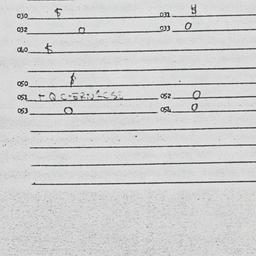 030 $ 031 y
032 0 033 0
040 $
050 $
051 052 0
053 0 054 0